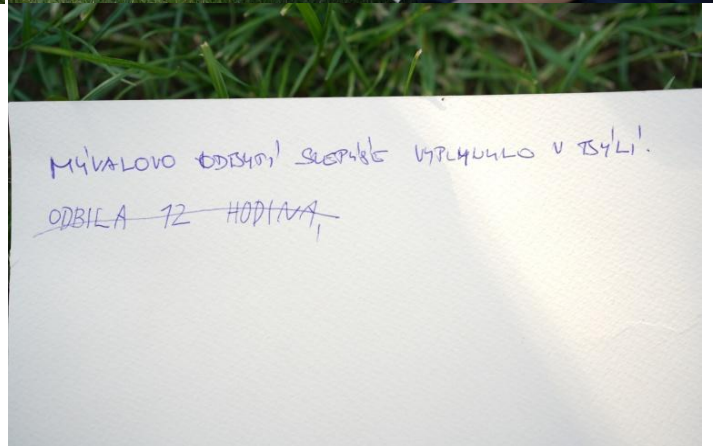 MÝVALOVO ODBYTÍ SLEPÝŠE VYPLYNULO V BÝLÍ.
ODBILA 12 HODINA,